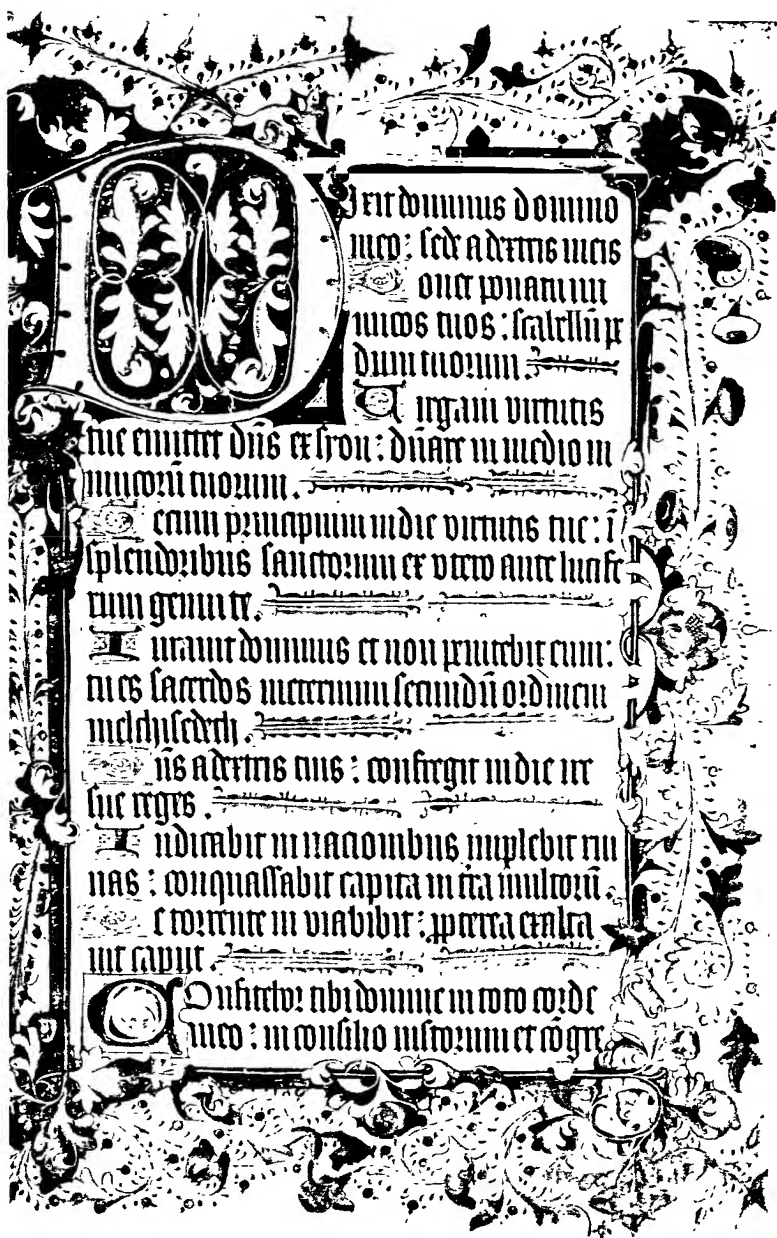 Dixit dominus domino
meo: sede a dextris meis
Donec ponam ini
micos tuos: scabellū p
dum tuorum.
Uirgam virtutis
tue emittet dn̄s ex syon: dn̄are in medio in
imicorū tuorum.
Tecum principium in die virtutis tue: ī
splendoribus sanctorum ex vtero ante lucife
rum genui te.
Iurauit dominus et non penitebit eum:
tu es sacerdos in eternum secundū ordinem
melchisedech.
Dn̄s a dextris tuis: confregit in die ire
sue reges.
Iudicabit in nacionibus implebit rui
nas: conquassabit capita in tr̄a multorū.
De torrente in via bibit: ꝓpterea exalta
uit caput.
Confitebor tibi domine in toto corde
meo: in consilio iustorum et cōgre